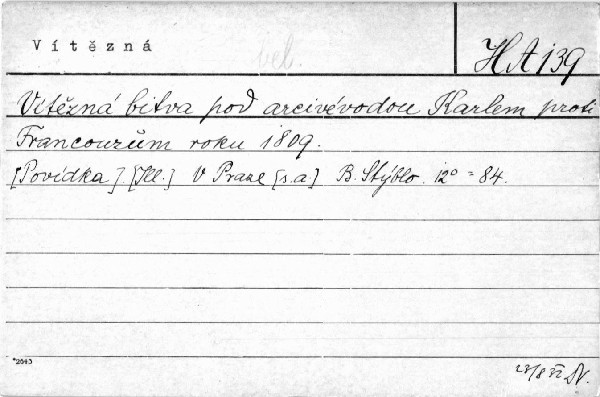 Vítězná
vel.
HA139
Vítězná bitva pod arcivévodou Karlem proti
Francouzům roku 1809.
[Povídka] [Ill.] V Praze [s.a.] B. Stýblo. 12° = 84.
*2643